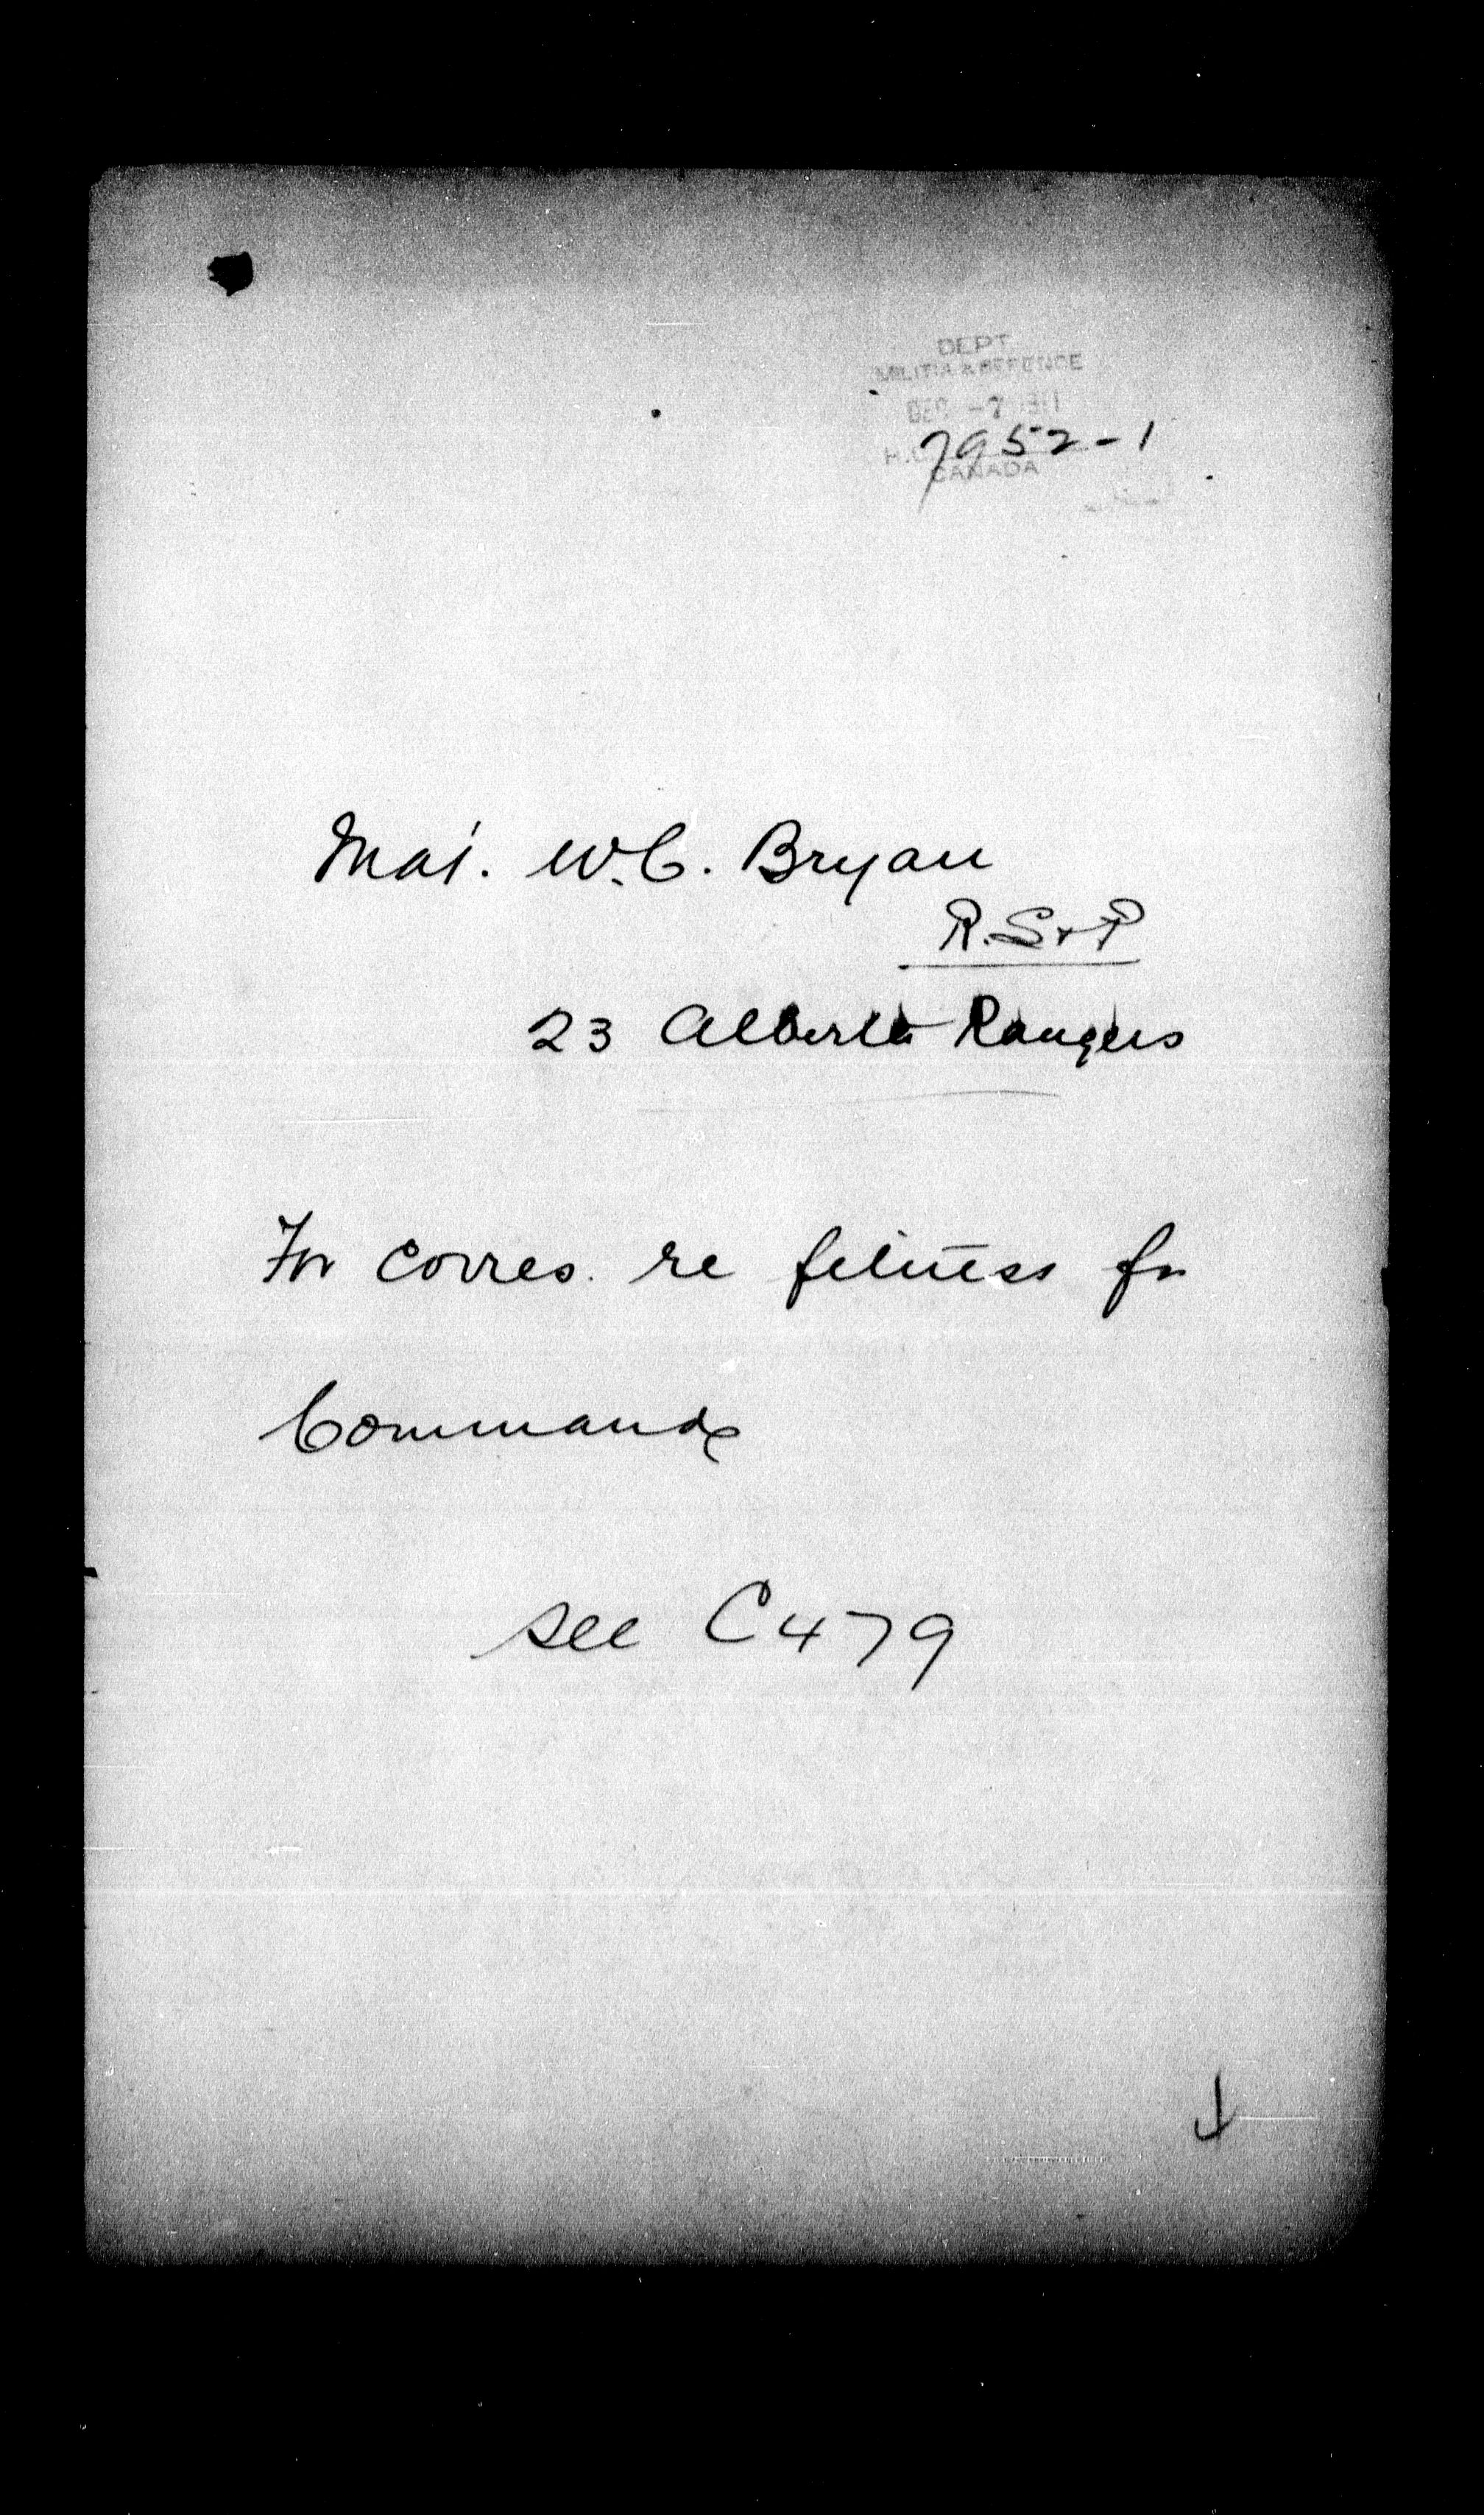 DEPT.
MILITIA & DEFENCE
DEC -7 1911
7952-1
H.Q.
CANADA
Maj. W.C. Bryan
R.S & P
23 Alberta Rangers
For corres. re fitness for
Command
see C 479